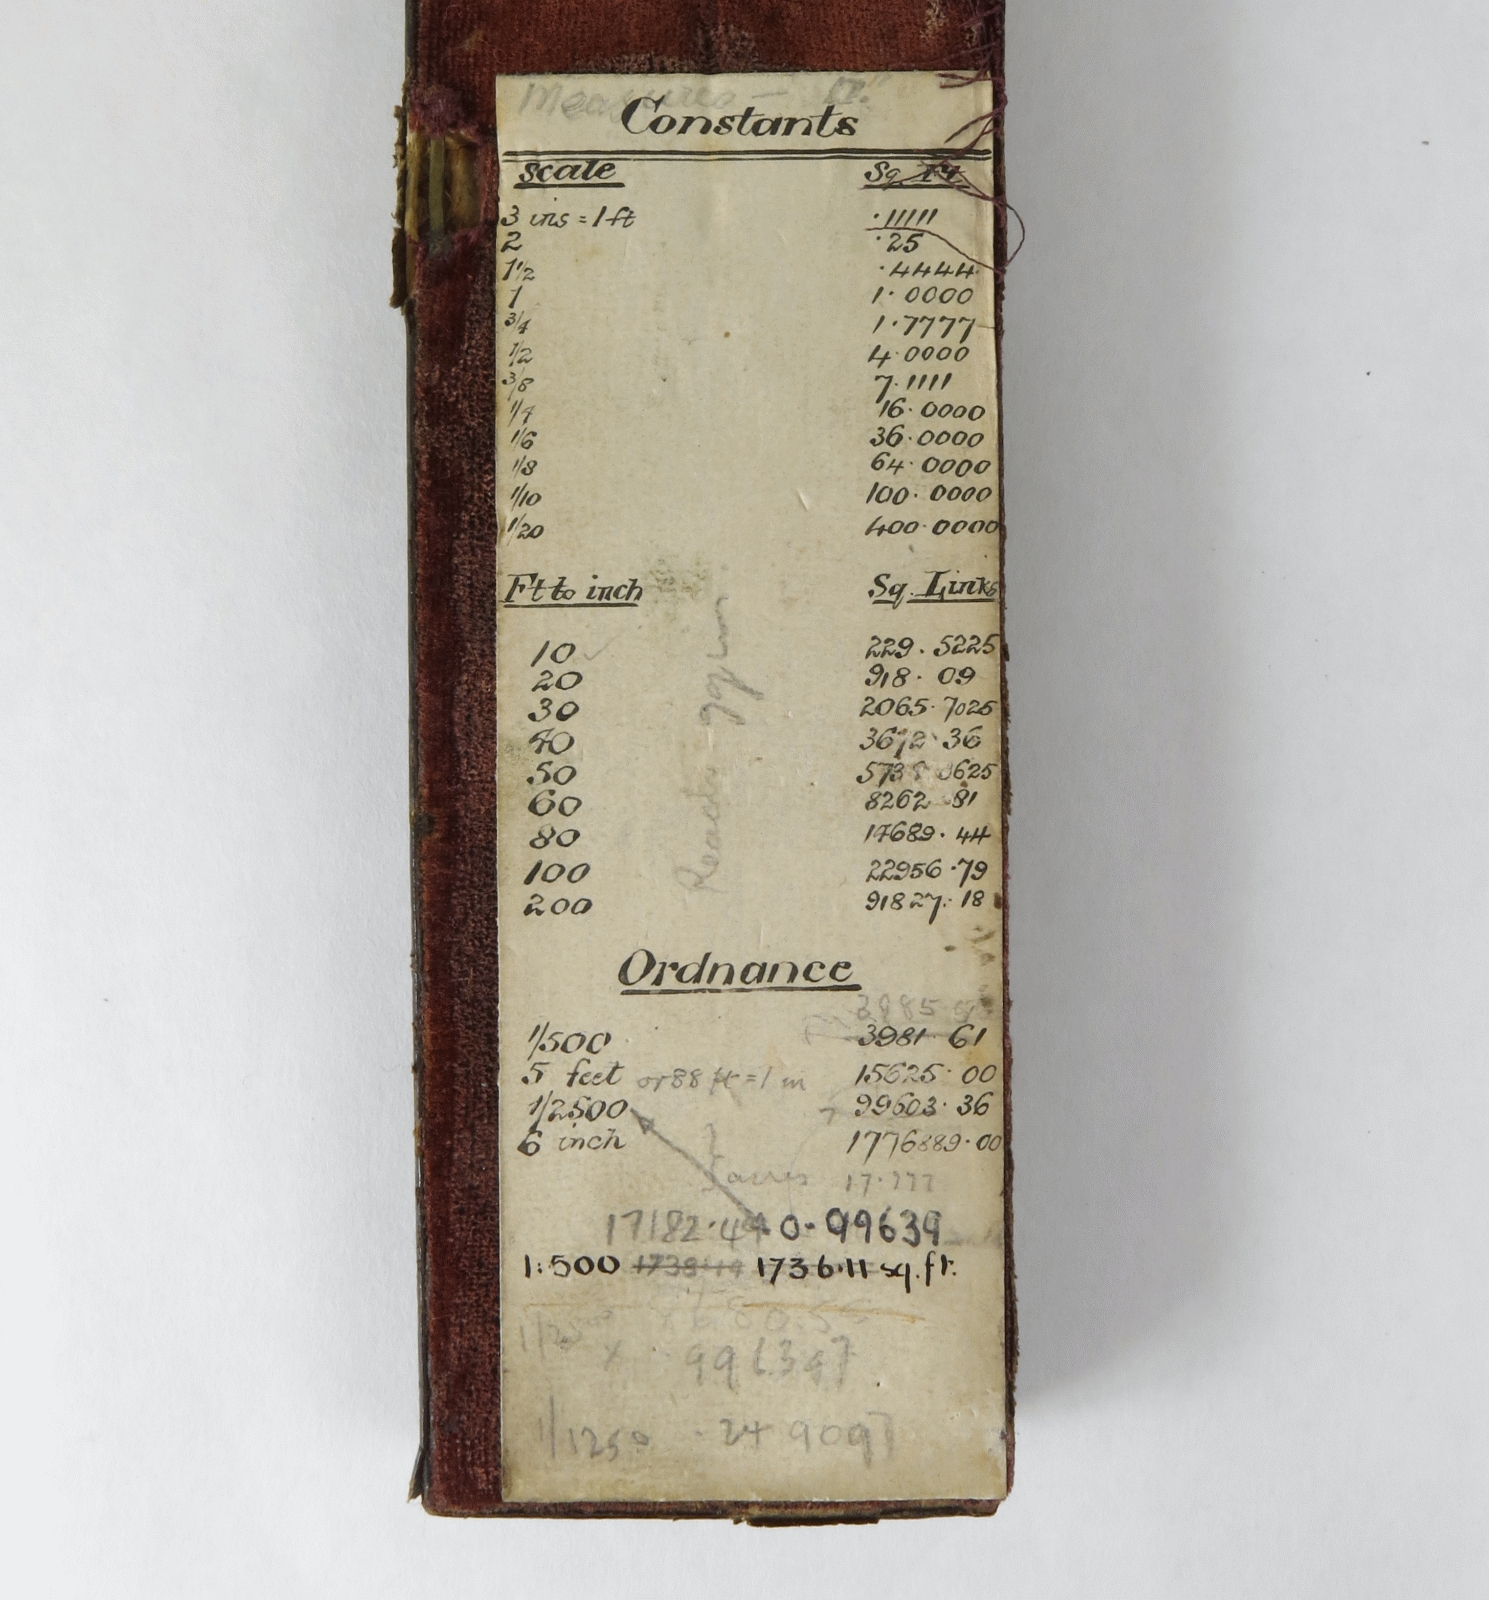 Constants
Scale Sq. Ft.
3 ins = 1 ft ·11111
2 ·25
1½ ·4444
1 1·0000
3/4 1·7777
1/2 4·0000
3/8 7·1111
1/4 16·0000
1/6 36·0000
1/8 64·0000
1/10 100·0000
1/20 400·0000
Ft to inch Sq. Links
10 229·5225
20 918·09
30 2065·7025
40 3672·36
50 5738·0625
60 8262·81
80 14689·44
100 22956·79
200 91827·18
Ordnance
1/500 3981·61
5 feet or 88 ft = 1 in 15625·00
1/2500 99603·36
6 inch 1776889·00
acres 17·777
0·99639
1:500 1736·11 sq. ft.
996397
1/1250 ·249097